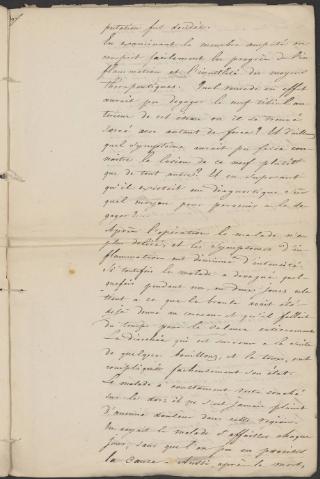 putation fut décidée.
En examinant le membre amputé on
conçoit facilement les progrès de l'in
flammation et l'inutilité des moyens
thérapeutiques. Quel remède en effet
aurait pu dégager le nerf tibial an
térieur de cet étau où il se trouve
serré avec autant de force? Et d'ailleurs
quel symptôme aurait pu faire con
naître la lésion de ce nerf plutôt
que de tout autre? Et en supposant
qu'il existait un diagnostique sûr
quel moyen pour parvenir à le dé
gager?
Après l'opération le malade n'a
plus déliré, et les symptômes d'in
flammation ont diminué d'intensité.
Si toutefois le malade a divagué quel
quefois pendant un ou deux jours cela
tient à ce que le branle avait été
déjà donné au cerveau et qu'il fallait
du temps pour le calmer entièrement.
La diarrhée qui est survenue à la suite
de quelques bouillons, et la toux, ont
compliqué fâcheusement son état.
Le malade a constamment resté couché
sur le dos il ne s'est jamais plaint
d'aucune douleur dans cette région.
On voyait le malade s'affaiblir chaque
jour, sans que l'on pu en
la cause. Aussi, après la mort,